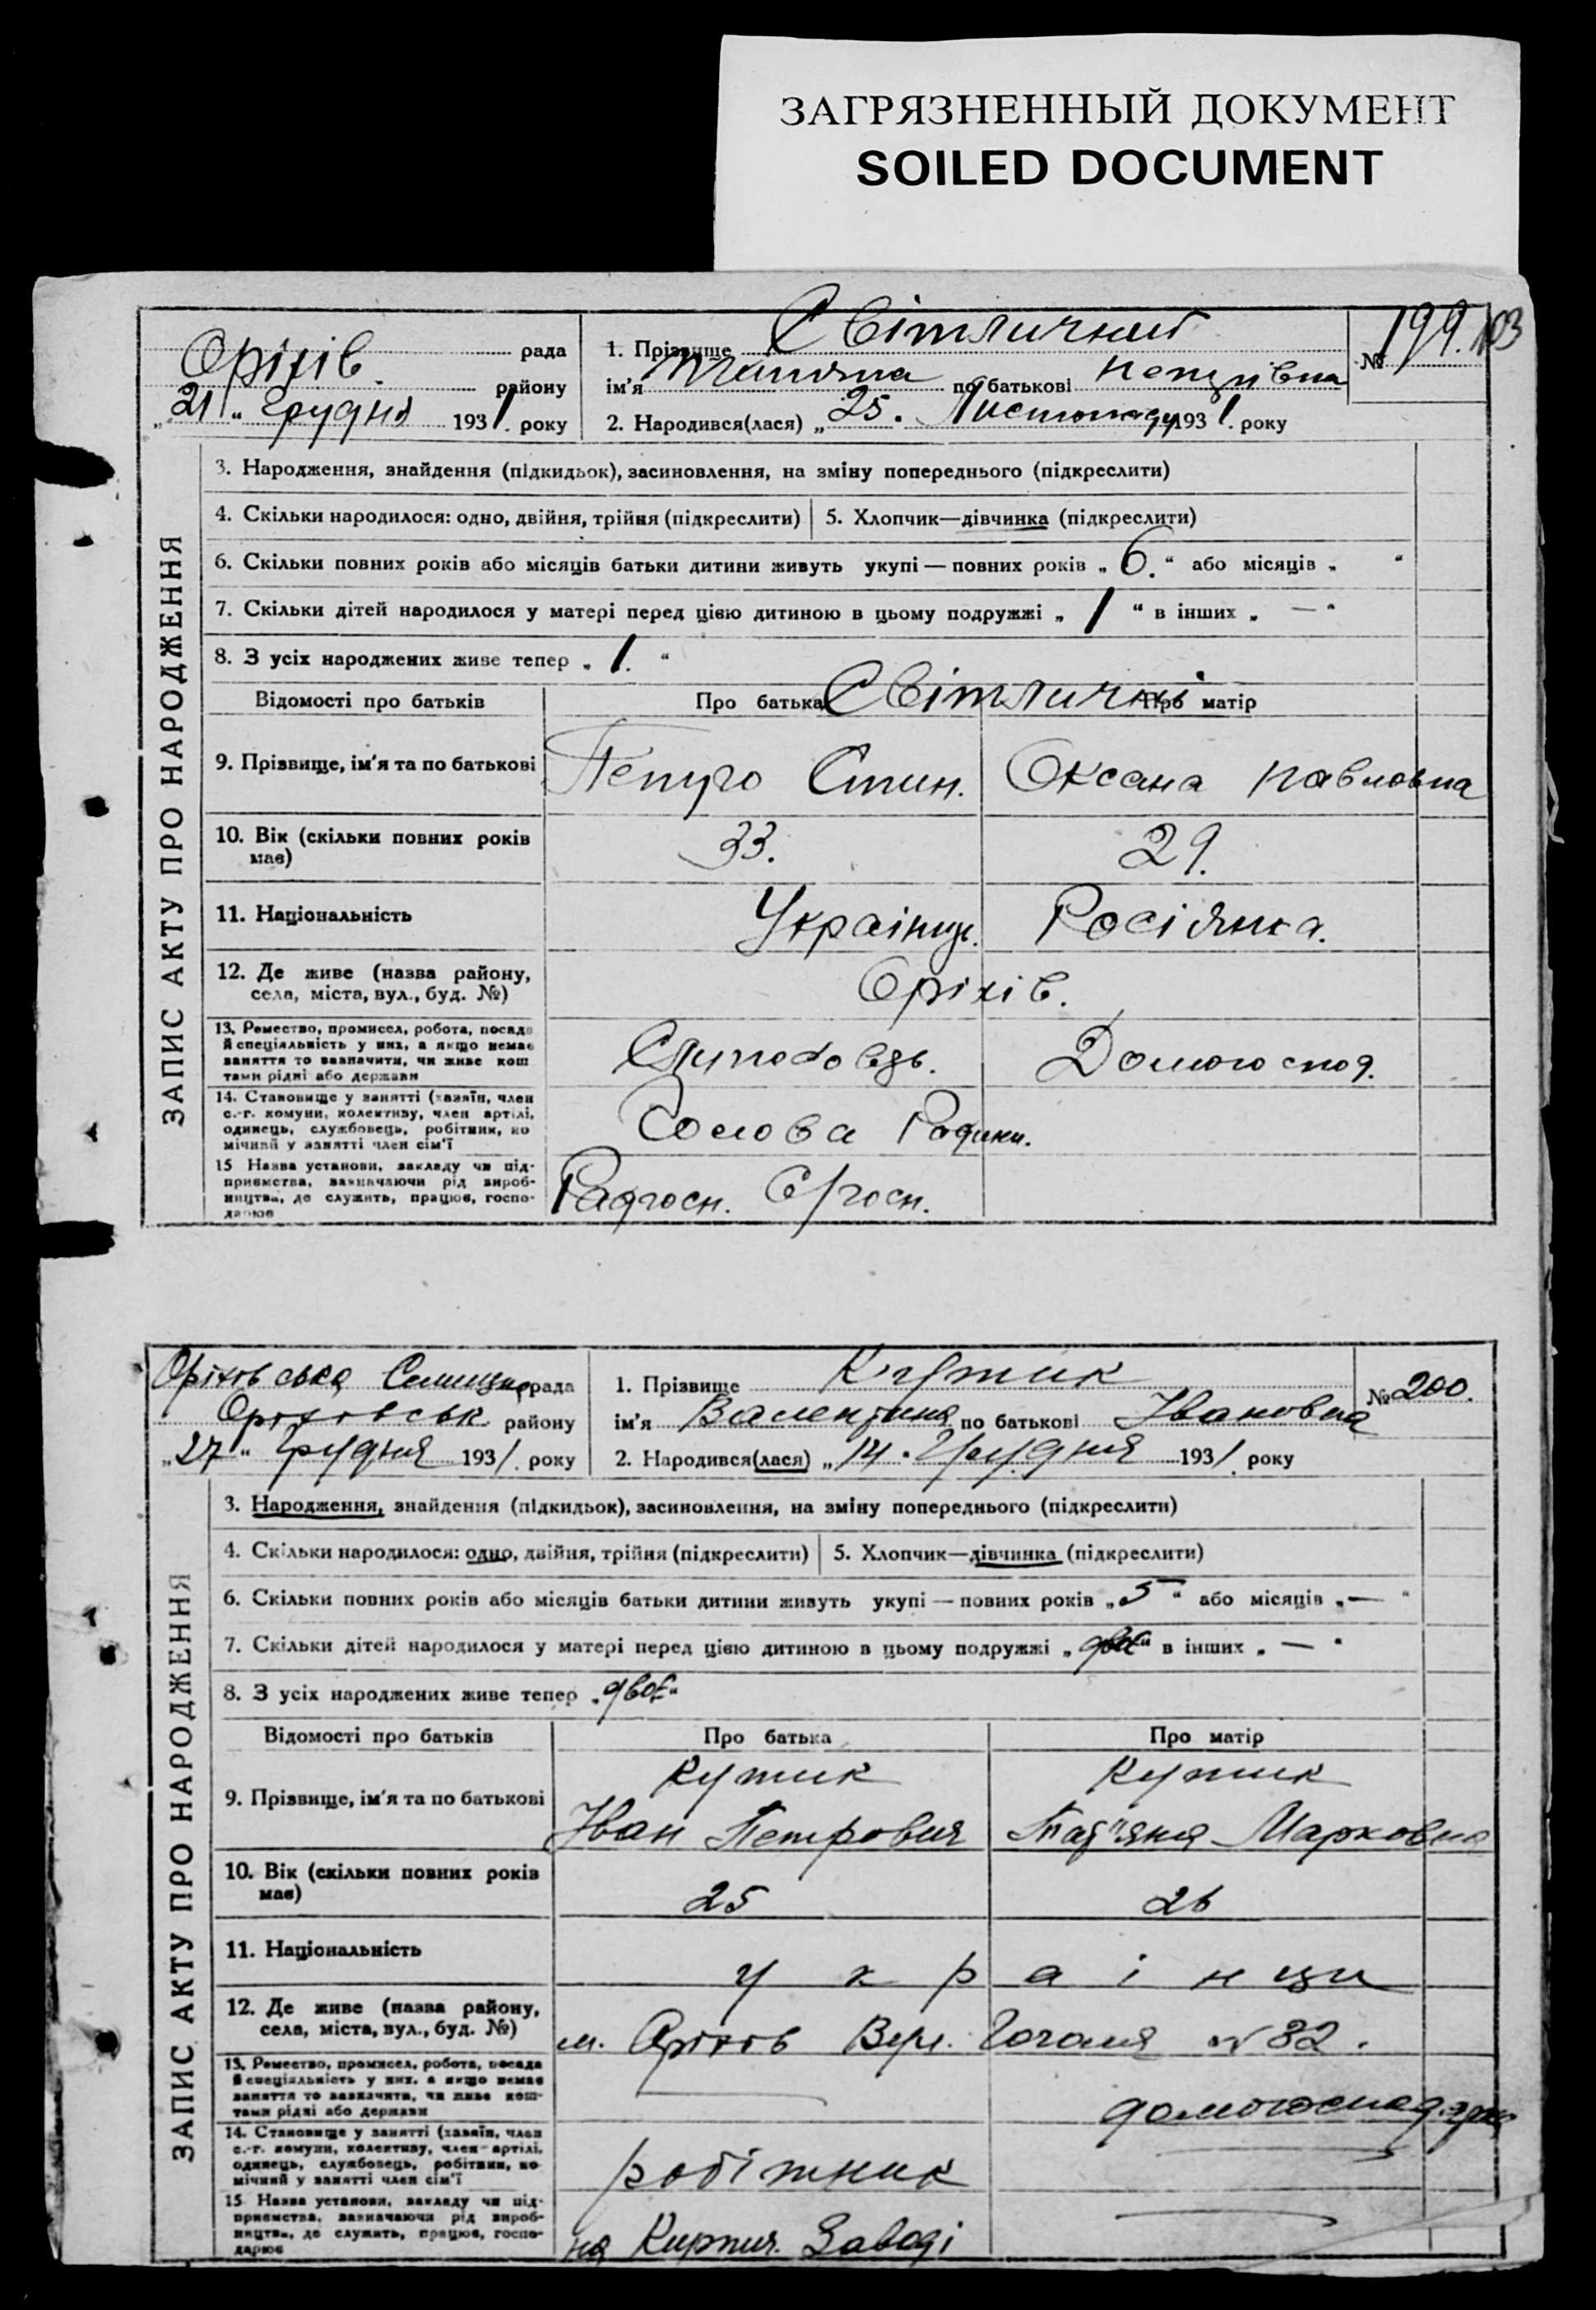 ЗАГРЯЗНЕННЫЙ ДОКУМЕНТ
SOILED DOCUMENT
ЗАПИС АКТУ ПРО НАРОДЖЕННЯ
Оріхів. рада
району
„21“ Грудня 1931. року
1. Прізвище Світличний
№ 199. 103
ім'я по батькові Петрівна
2. Народився(лася) „25. Листопаду 1931. року
3. Народження, знайдення (підкидьок), засиновлення, на зміну попереднього (підкреслити)
4. Скільки народилося: одно, двійня, трійня (підкреслити) 5. Хлопчик—дівчинка (підкреслити)
6. Скільки повних років або місяців батьки дитини живуть укупі — повних років „6.“ або місяців „ “
7. Скільки дітей народилося у матері перед цією дитиною в цьому подружжі „1“ в інших „—“
8. З усіх народжених живе тепер „1.“
Відомості про батьків Про батька Про матір
Світличні
9. Прізвище, ім'я та по батькові Петро Оксана Павловна
10. Вік (скільки повних років має) 33. 29.
11. Національність Українць. Росіянка.
12. Де живе (назва району, села, міста, вул., буд. №) Оріхів.
13. Ремество, промисел, робота, посада й спеціяльність у них, а якщо немає заняття то зазначити, чи живе коштами рідні або держави Домогоспод.
14. Становище у занятті (хазяїн, член с.-г. комуни, колективу, член артілі, одинець, службовець, робітник, помічний у занятті член сім'ї Голова Родини.
15 Назва установи, закладу чи підприємства, зазначаючи рід виробництва, де служить, працює, господарює Радгосп. С/госп.
ЗАПИС АКТУ ПРО НАРОДЖЕННЯ
Оріхівська Селищна рада
Оріхівськ району
„27“ Грудня 1931. року
1. Прізвище Кутик
№ 200.
ім'я Валентина по батькові Івановна
2. Народився(лася) „14. Грудня 1931. року
3. Народження, знайдення (підкидьок), засиновлення, на зміну попереднього (підкреслити)
4. Скільки народилося: одно, двійня, трійня (підкреслити) 5. Хлопчик—дівчинка (підкреслити)
6. Скільки повних років або місяців батьки дитини живуть укупі — повних років „5“ або місяців „—“
7. Скільки дітей народилося у матері перед цією дитиною в цьому подружжі „двоє“ в інших „—“
8. З усіх народжених живе тепер „двоє“
Відомості про батьків Про батька Про матір
Кутик Кутик
9. Прізвище, ім'я та по батькові Іван Петрович Тат'яна Марковна
10. Вік (скільки повних років має) 25 26
11. Національність українци
12. Де живе (назва району, села, міста, вул., буд. №) м. Оріхів Гоголя № 82.
13. Ремество, промисел, робота, посада й спеціяльність у них, а якщо немає заняття то зазначити, чи живе коштами рідні або держави
14. Становище у занятті (хазяїн, член с.-г. комуни, колективу, член артілі, одинець, службовець, робітник, помічний у занятті член сім'ї робітник
15 Назва установи, закладу чи підприємства, зазначаючи рід виробництва, де служить, працює, господарює на Кирпич. Заводі